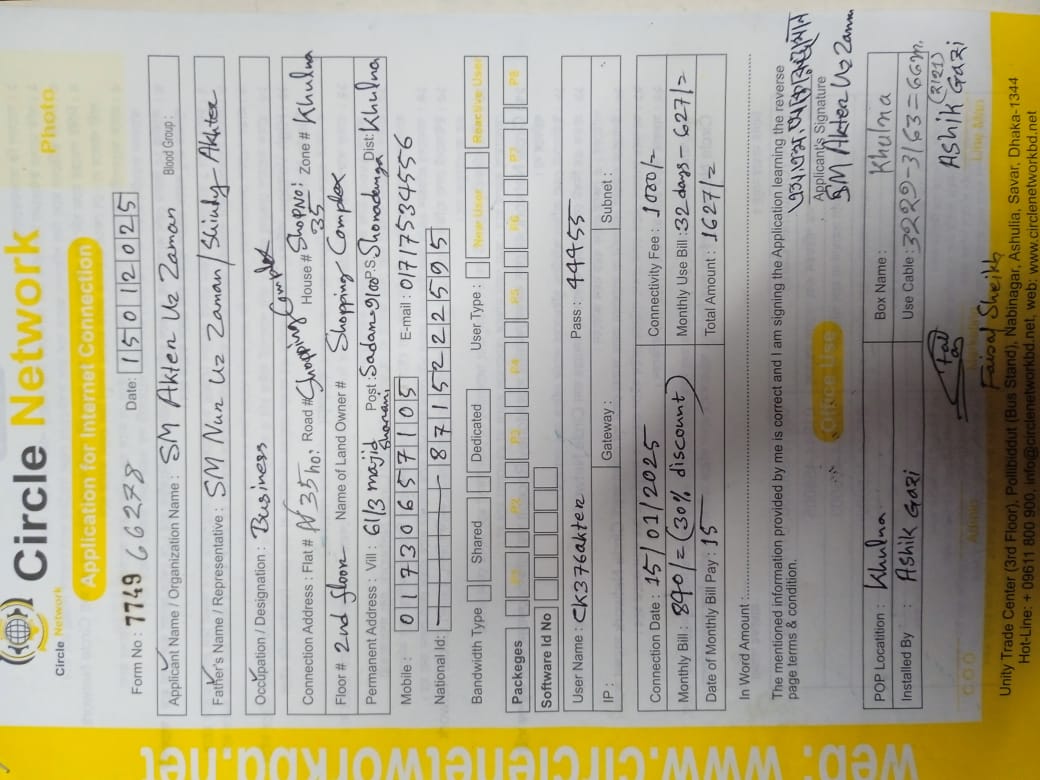 Circle Network
Circle Network
Photo
Application for Internet Connection
Form No : 7749 66278 Date: 15012025
Applicant Name / Organization Name : SM Akter Uz Zaman Blood Group:
Father's Name / Representative : SM Nur Uz Zaman/
Occupation / Designation : Business
Connection Address : Flat # N 35 no; Road # Shopping Complex House # Shop No: 35 Zone # Khulna
Floor # 2nd floor Name of Land Owner # Shopping Complex
Permanent Address : Vill : 61/3 majid Sharani Post : Sadar-9100 P.S: Shonadanga Dist: Khulna
Mobile : 01730657105 E-mail : 01717534556
National Id: 8715222595
Bandwidth Type Shared Dedicated User Type : New User Reactive User
Packeges P1 P2 P3 P4 P5 P6 P7 P8
Software Id No
User Name : Ck376akter Pass : 44455
IP : Gateway : Subnet :
Connection Date : 15/01/2025 Connectivity Fee : 1000/-
Monthly Bill : 890/= (30% discount) Monthly Use Bill : 32 days - 627/=
Date of Monthly Bill Pay : 15 Total Amount : 1627/=
In Word Amount :
The mentioned information provided by me is correct and I am signing the Application learning the reverse
page terms & condition.
Applicant's Signature
SM Akter Uz Zaman
Office Use
POP Locatition : Khulna Box Name : Khulna
Installed By : Ashik Gazi Use Cable : 3229-3163=66m.
(2121)
Ashik Gazi
Faisal Sheikh
C.O.O Admin Marketing Line Man
Unity Trade Center (3rd Floor), Pollibiddut (Bus Stand), Nabinagar, Ashulia, Savar, Dhaka-1344
Hot-Line: + 09611 800 900, info@circlenetworkbd.net, web: www.circlenetworkbd.net
web: www.circlenetworkbd.net